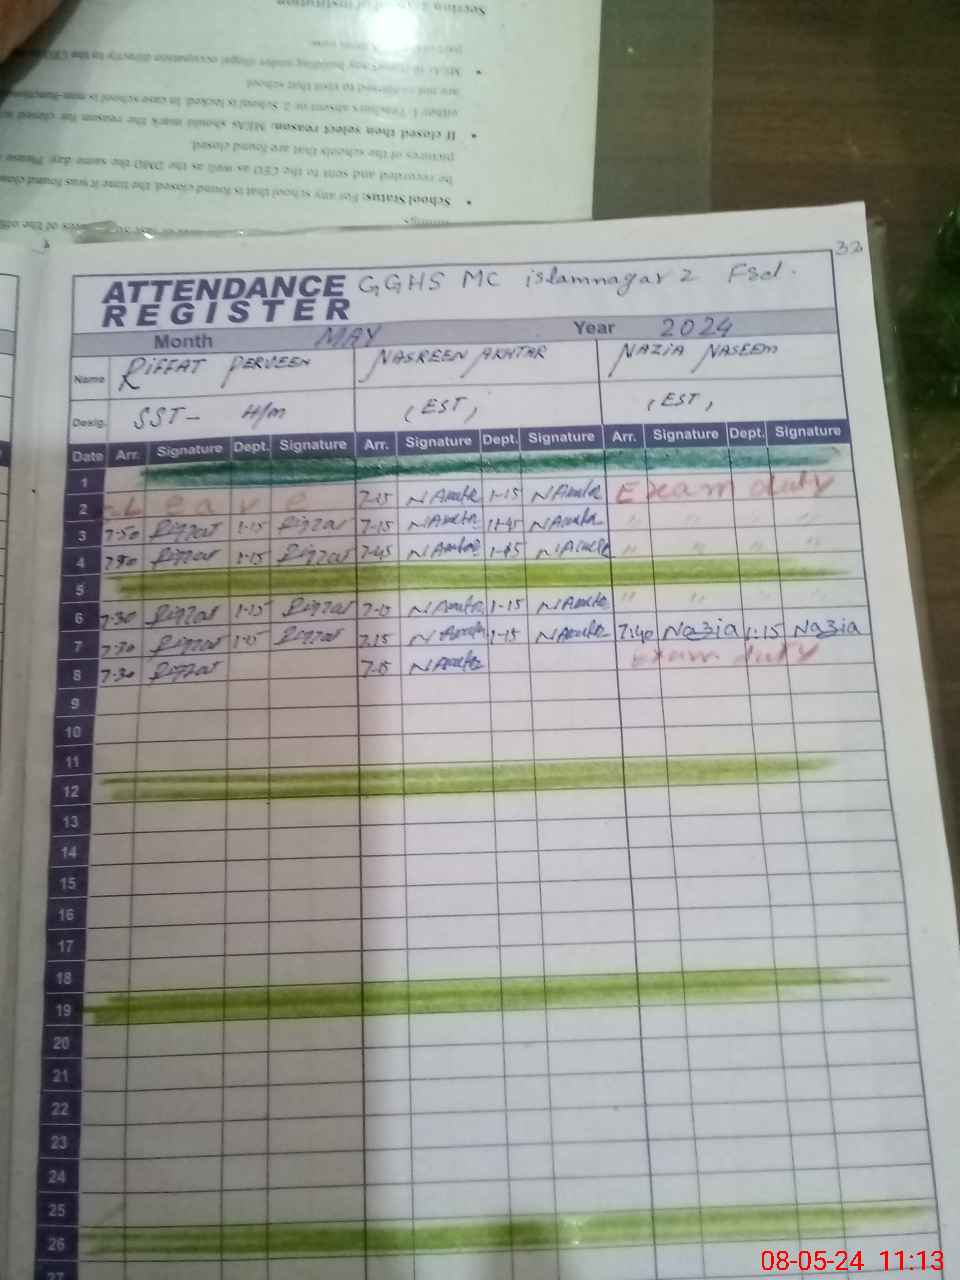 Section
School Status: For any school that is found closed, the time it was found
be recorded and sent to the CEO as well as the DMO the same day. Please
pictures of the schools that are found closed.
If closed then select reason: MEAs should mark the reason for closed
either 1. Teachers absent or 2. School is locked. In case school is
are not
to visit that school
32
ATTENDANCE REGISTER GGHS MC islamnagar 2 Fsd.
Month MAY Year 2024
Name RIFFAT PERVEEN NASREEN AKHTAR NAZIA NASEEM
Desig. SST- H/m (EST) (EST)
Date Arr. Signature Dept. Signature Arr. Signature Dept. Signature Arr. Signature Dept. Signature
1
2 Leave 7-15 NAkhtar 1-15 NAkhtar Exam duty
3 7-50 Riffat 1-15 Riffat 7-15 NAkhtar 1-45 NAkhtar " " " "
4 7-30 Riffat 1-15 Riffat 7-45 NAkhtar 1-45 NAkhtar " " " "
5
6 7-30 Riffat 1-15 Riffat 7-15 NAkhtar 1-15 NAkhtar " " " "
7 7-30 Riffat 1-15 Riffat 7.15 NAkhtar 1-15 NAkhtar 7.40 Nazia 1.15 Nazia
8 7-30 Riffat 7-15 NAkhtar Exam duty
9
10
11
12
13
14
15
16
17
18
19
20
21
22
23
24
25
26
27
08-05-24 11:13